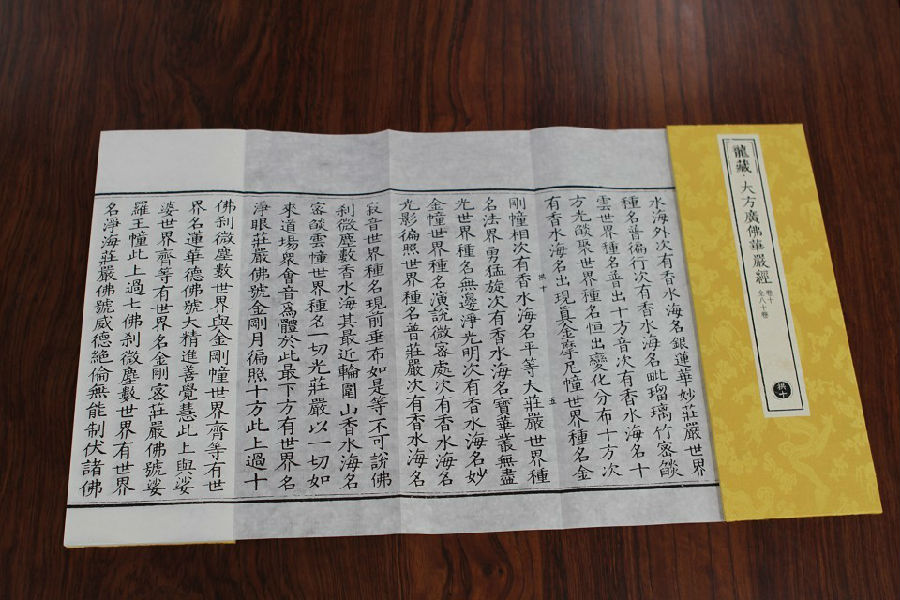 龍藏·大方廣佛華嚴經
卷十
全八十卷
拱十
水海外次有香水海名銀蓮華妙莊嚴世界
種名普徧行次有香水海名毗瑠璃竹密燄
雲世界種名普出十方音次有香水海名十
方光燄聚世界種名恒出變化分布十方次
有香水海名出現真金摩尼幢世界種名金
拱十 五
剛幢相次有香水海名平等大莊嚴世界種
名法界勇猛旋次有香水海名寶華叢無盡
光世界種名無邊淨光明次有香水海名妙
金幢世界種名演說微密處次有香水海名
光影徧照世界種名普莊嚴次有香水海名
寂音世界種名現前垂布如是等不可說佛
刹微塵數香水海其最近輪圍山香水海名
密燄雲幢世界種名一切光莊嚴以一切如
來道場眾會音爲體於此最下方有世界名
淨眼莊嚴佛號金剛月徧照十方此上過十
佛刹微塵數世界與金剛幢世界齊等有世
界名蓮華德佛號大精進善覺慧此上與娑
婆世界齊等有世界名金剛密莊嚴佛號娑
羅王幢此上過七佛刹微塵數世界有世界
名淨海莊嚴佛號威德絕倫無能制伏諸佛